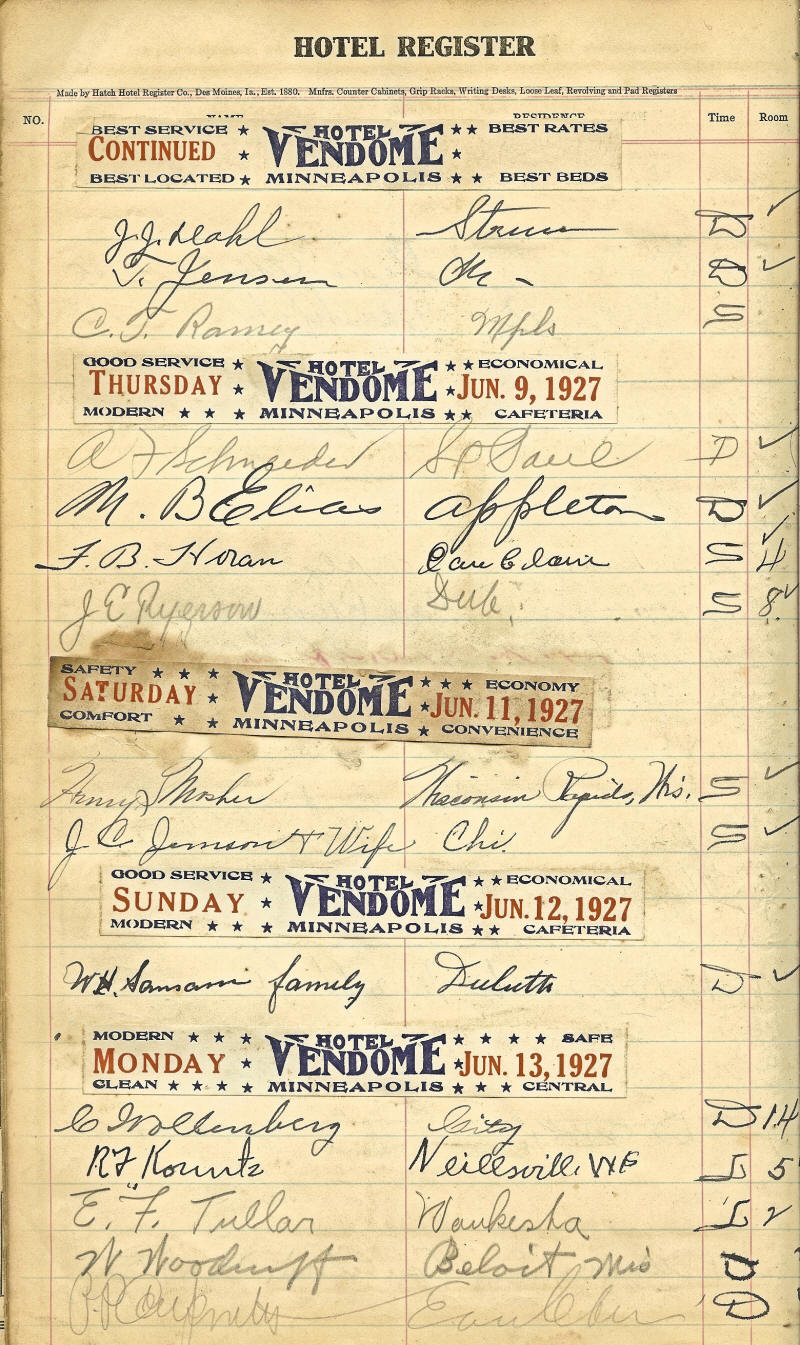 HOTEL REGISTER
Made by Hatch Hotel Register Co., Des Moines, Ia., Est. 1880. Mnfrs. Counter Cabinets, Grip Racks, Writing Desks, Loose Leaf, Revolving and Pad Registers
NO. NAME RESIDENCE Time Room
BEST SERVICE ★ HOTEL ★★ BEST RATES
CONTINUED ★ VENDOME ★
BEST LOCATED ★ MINNEAPOLIS ★ ★ BEST BEDS
J. J. Dahl Strum D ✓
Jensen D ✓
C. T. Ramey Mpls S
GOOD SERVICE ★ HOTEL ★★ ECONOMICAL
THURSDAY ★ VENDOME ★ JUN. 9, 1927
MODERN ★ ★ ★ MINNEAPOLIS ★★ CAFETERIA
A F Schroeder St Paul D ✓
M. B Elias Appleton D ✓
F. B. Horan Eau Claire S ✓ 4
J E Ryerson Dub. S 8
SAFETY ★ ★ ★ HOTEL ★ ★ ★ ECONOMY
SATURDAY ★ VENDOME ★ JUN. 11, 1927
COMFORT ★ ★ MINNEAPOLIS ★ CONVENIENCE
Henry S Mosher Wisconsin Rapids, Wis. S ✓
J. C. Jemson + Wife Chi. S ✓
GOOD SERVICE ★ HOTEL ★★ ECONOMICAL
SUNDAY ★ VENDOME ★ JUN. 12, 1927
MODERN ★ ★ ★ MINNEAPOLIS ★★ CAFETERIA
W.H. family Duluth D ✓
MODERN ★ ★ ★ HOTEL ★ ★ ★ ★ SAFE
MONDAY ★ VENDOME ★ JUN. 13, 1927
CLEAN ★ ★ ★ ★ MINNEAPOLIS ★ ★ ★ CENTRAL
C Wollenberg City D 14
R F Kountz Neillsville, Wis 5
E. F. Tullar Waukesha 2
W Woodruff Beloit Wis D
Eau Claire D